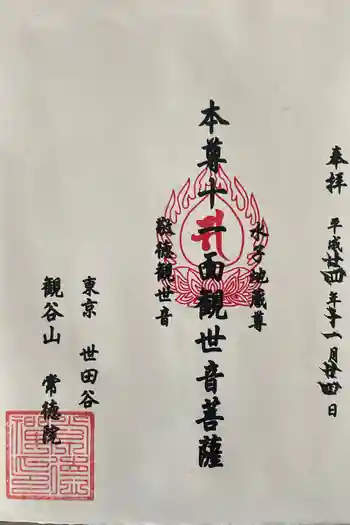 奉拝 平成廿四年十一月廿四日
水子地蔵尊
本尊十一面観世音菩薩
徳観世音
東京 世田谷
観谷山 常徳院